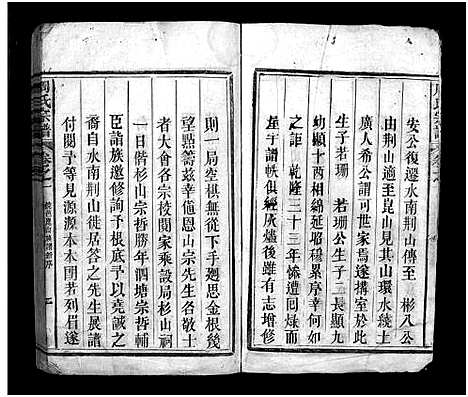 安公復遷水南荆山傳至 彬八公
由荆山適至崑山見其山環水繞土
廣人希公謂可世家焉遂搆室而居
生子若珊 若珊公生子二長顯九
幼顯十酉相綿延昭穆累序幸何如
之詎 乾隆三十三年慘遭回祿而
屋宇譜帙俱經灰燼後雖有志增修
則一局空棋無從下手廻思金梭後
點無籌兹幸値恩山宗先生召敬士
者大會各宗校閱家乘設局杉山祠
一日偕杉山宗哲勝年泗塘宗哲輔
臣詣族邀修詢予根底予以堯誠之
裔自水南荆山徙居答之先生展譜
付閱予等見源源本本團若列眉遂
周氏宗譜 卷之一